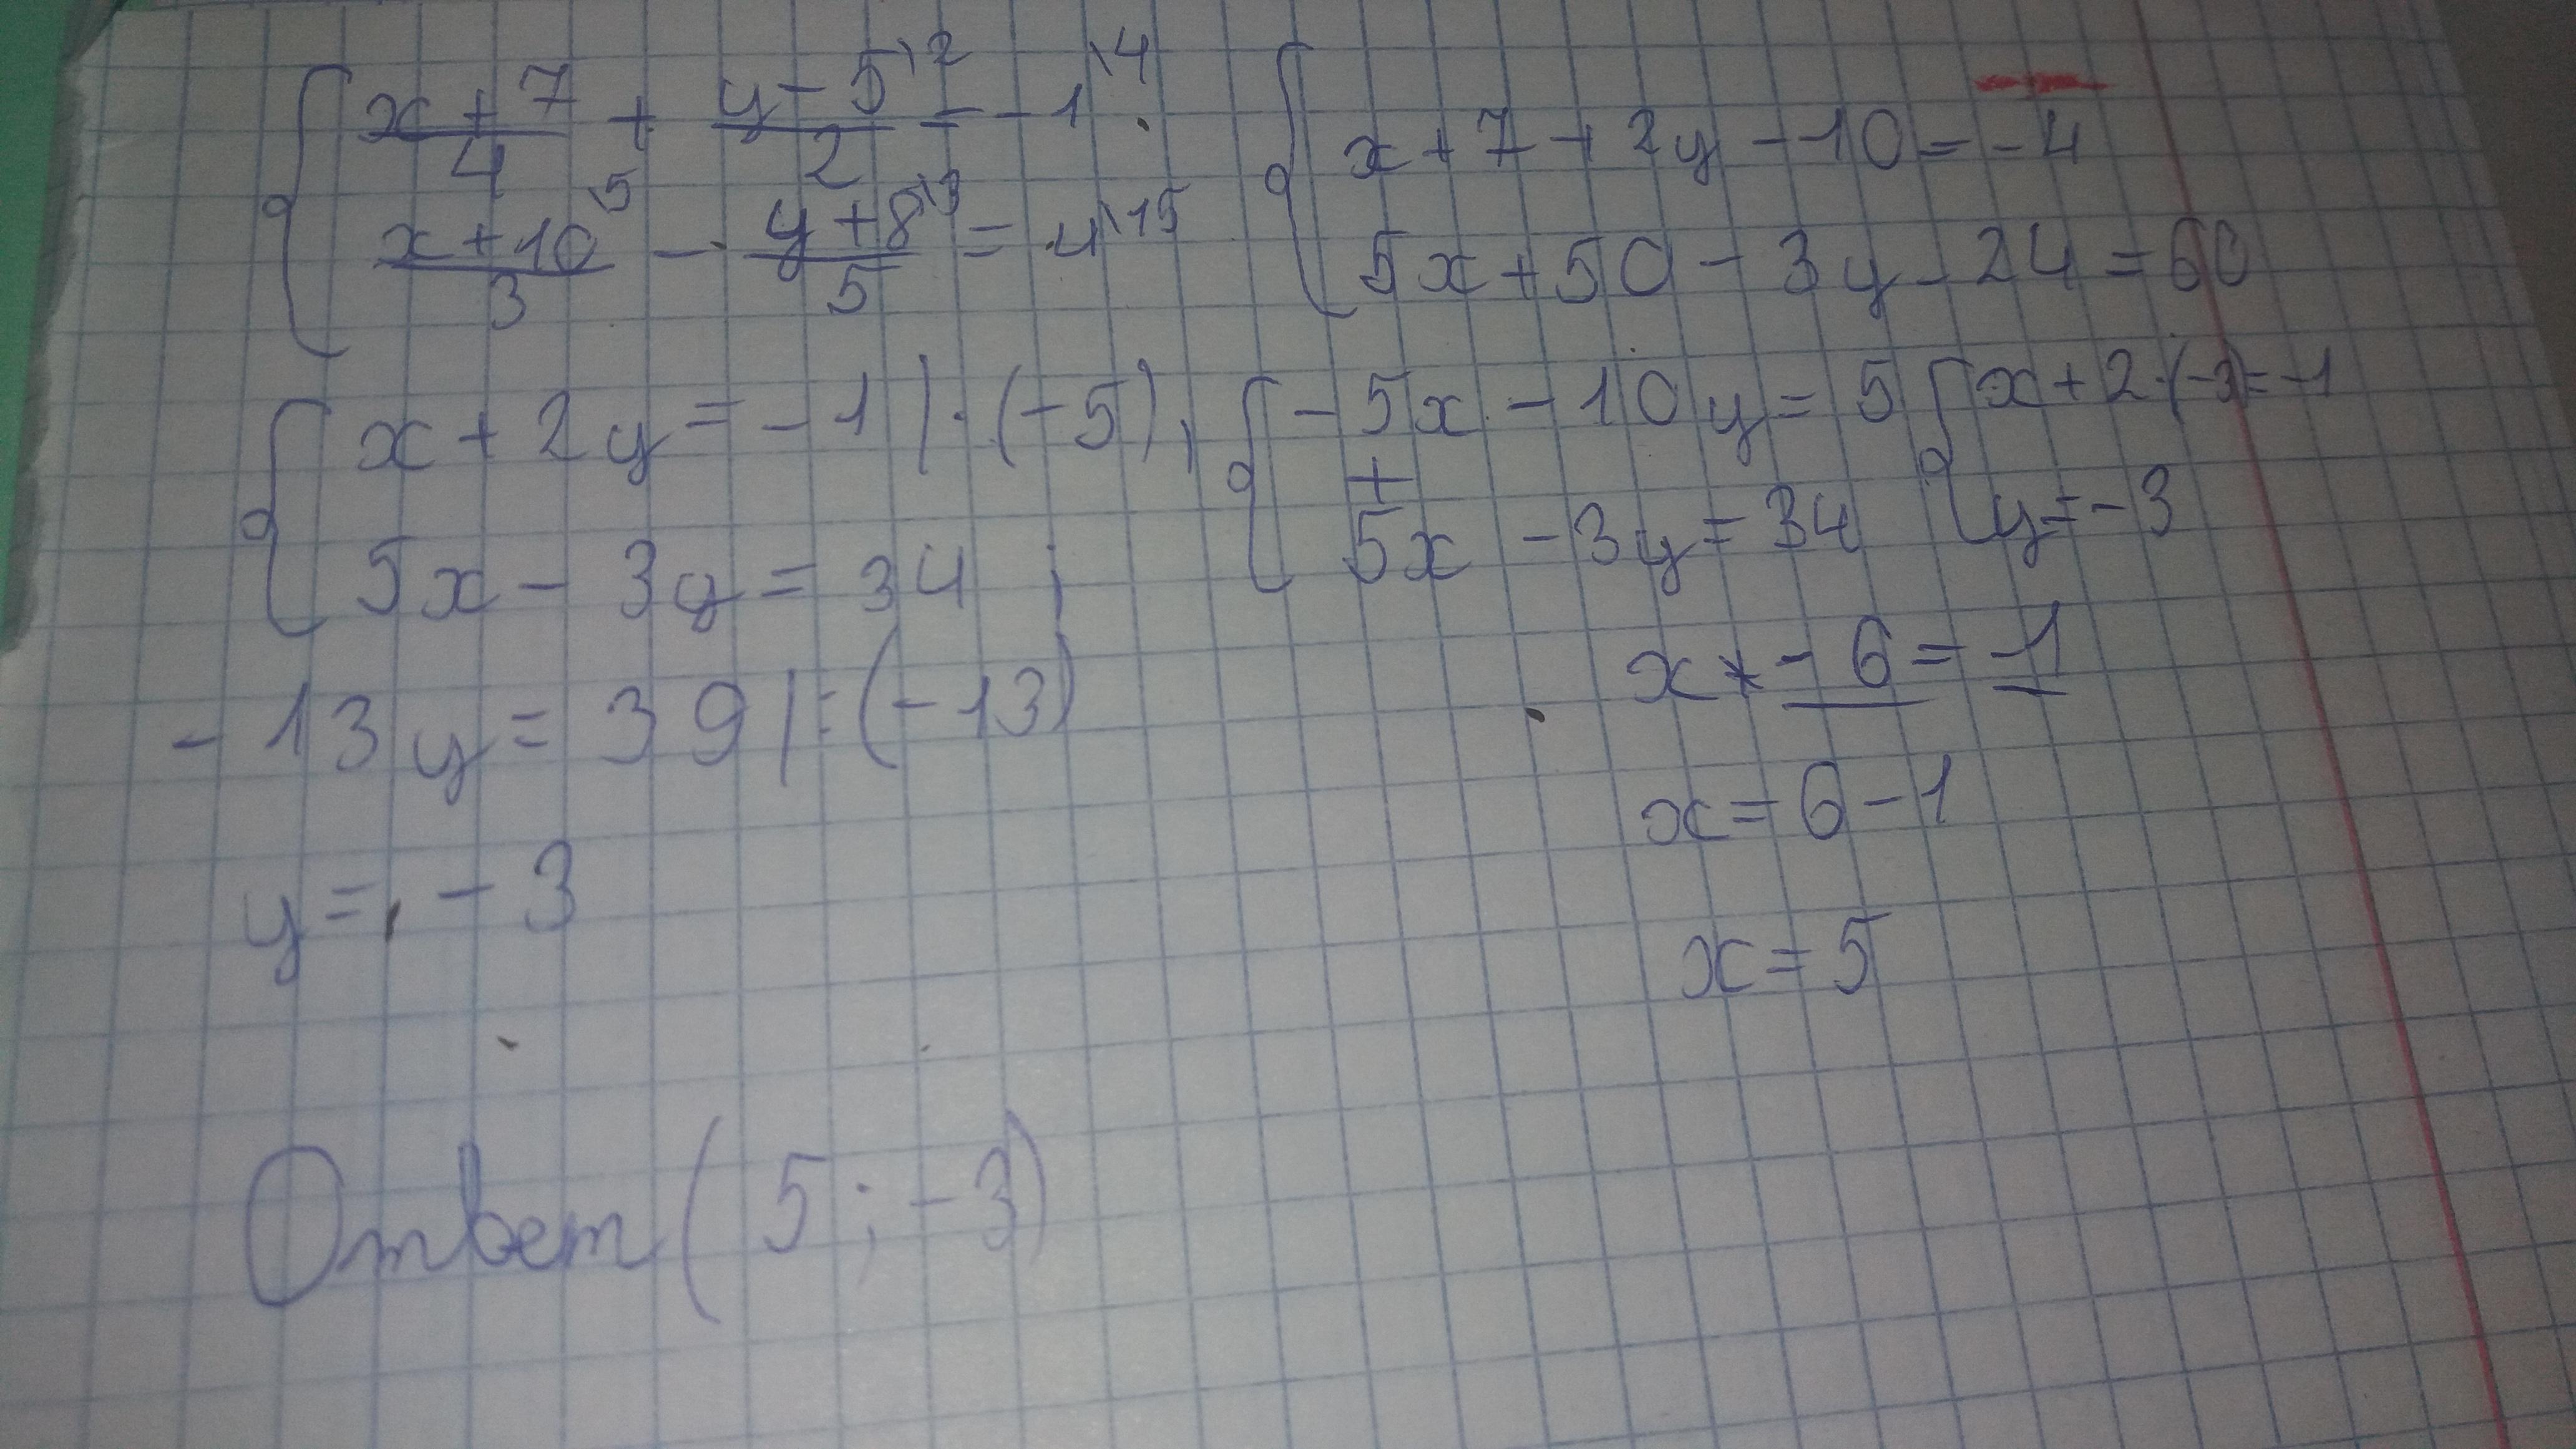 x + 7 / 4 + y - 5 / 2 \2 = -1 \4
x + 10 / 3 \5 - y + 8 / 5 \3 = 4 \15
x + 7 + 2y - 10 = -4
5x + 50 - 3y - 24 = 60
x + 2y = -1 | · (-5),
5x - 3y = 34 ;
-5x - 10y = 5
+
5x - 3y = 34
x + 2 · (-3) = -1
y = -3
-13y = 39 | : (-13)
y = -3
x + - 6 = -1
x = 6 - 1
x = 5
Ответ (5 ; -3)